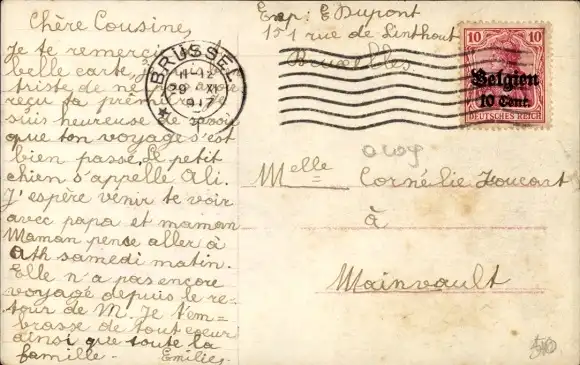 Chère Cousine,
Je te remercie
belle carte, Je
triste de ne
reçu ta première
suis heureuse de
que ton voyage s'est
bien passé. Le petit
chien s'appelle Ali.
J'espère venir te voir
avec papa et maman
Maman pense aller à
Ath samedi matin.
Elle n'a pas encore
voyagé depuis le re=
tour de M. Je t'em=
brasse de tout coeur
ainsi que toute la
famille-
Emilie
Exp: E Dupont
151 rue de Linthout
Bruxelles
BRUSSEL
11-12
29 XI
1917
10 10
Belgien
10 Cent.
DEUTSCHES REICH
Melle Cornélie Foucart
à
Mainvault